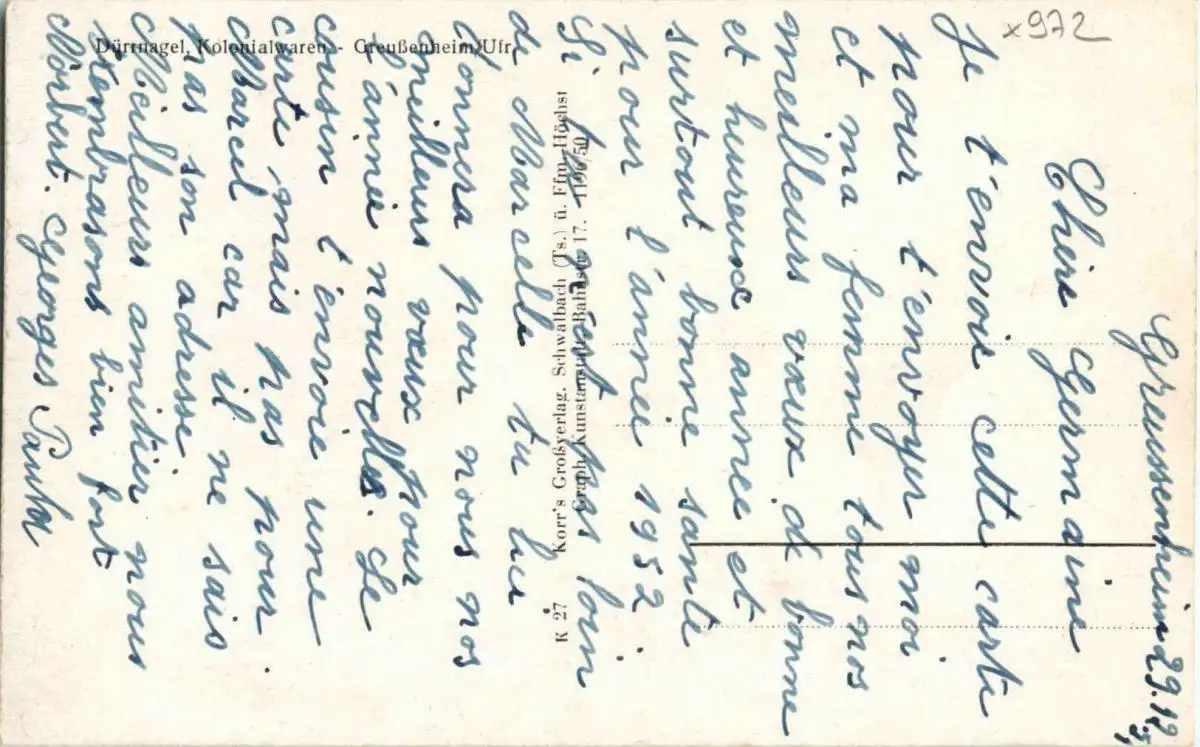 Greussenheim 29.12.51
Chere Germaine
Je t'envoie cette carte
pour t'envoyer moi
et ma femme tous nos
meilleurs vœux de bonne
et heureuse annee et
surtout bonne sante
pour l'annee 1952
Si tu n'est pas loin
de Marcel tu lui
donnera pour nous nos
meilleurs vœux pour
l'année nouvelle. Le
cousin t'envoie une
carte mais pas pour
Marcel car il ne sais
pas son adresse
Meilleurs amitier nous
t'embrasons bien fort
Norbert. Georges Paula
x972
Dürrnagel, Kolonialwaren - Greußenheim/Ufr.
K 27 Korr's Großverlag. Schwalbach (Ts.) ü. Ffm-Höchst
Graph. Kunstanstalt, Bahnstr. 17. 1196/50